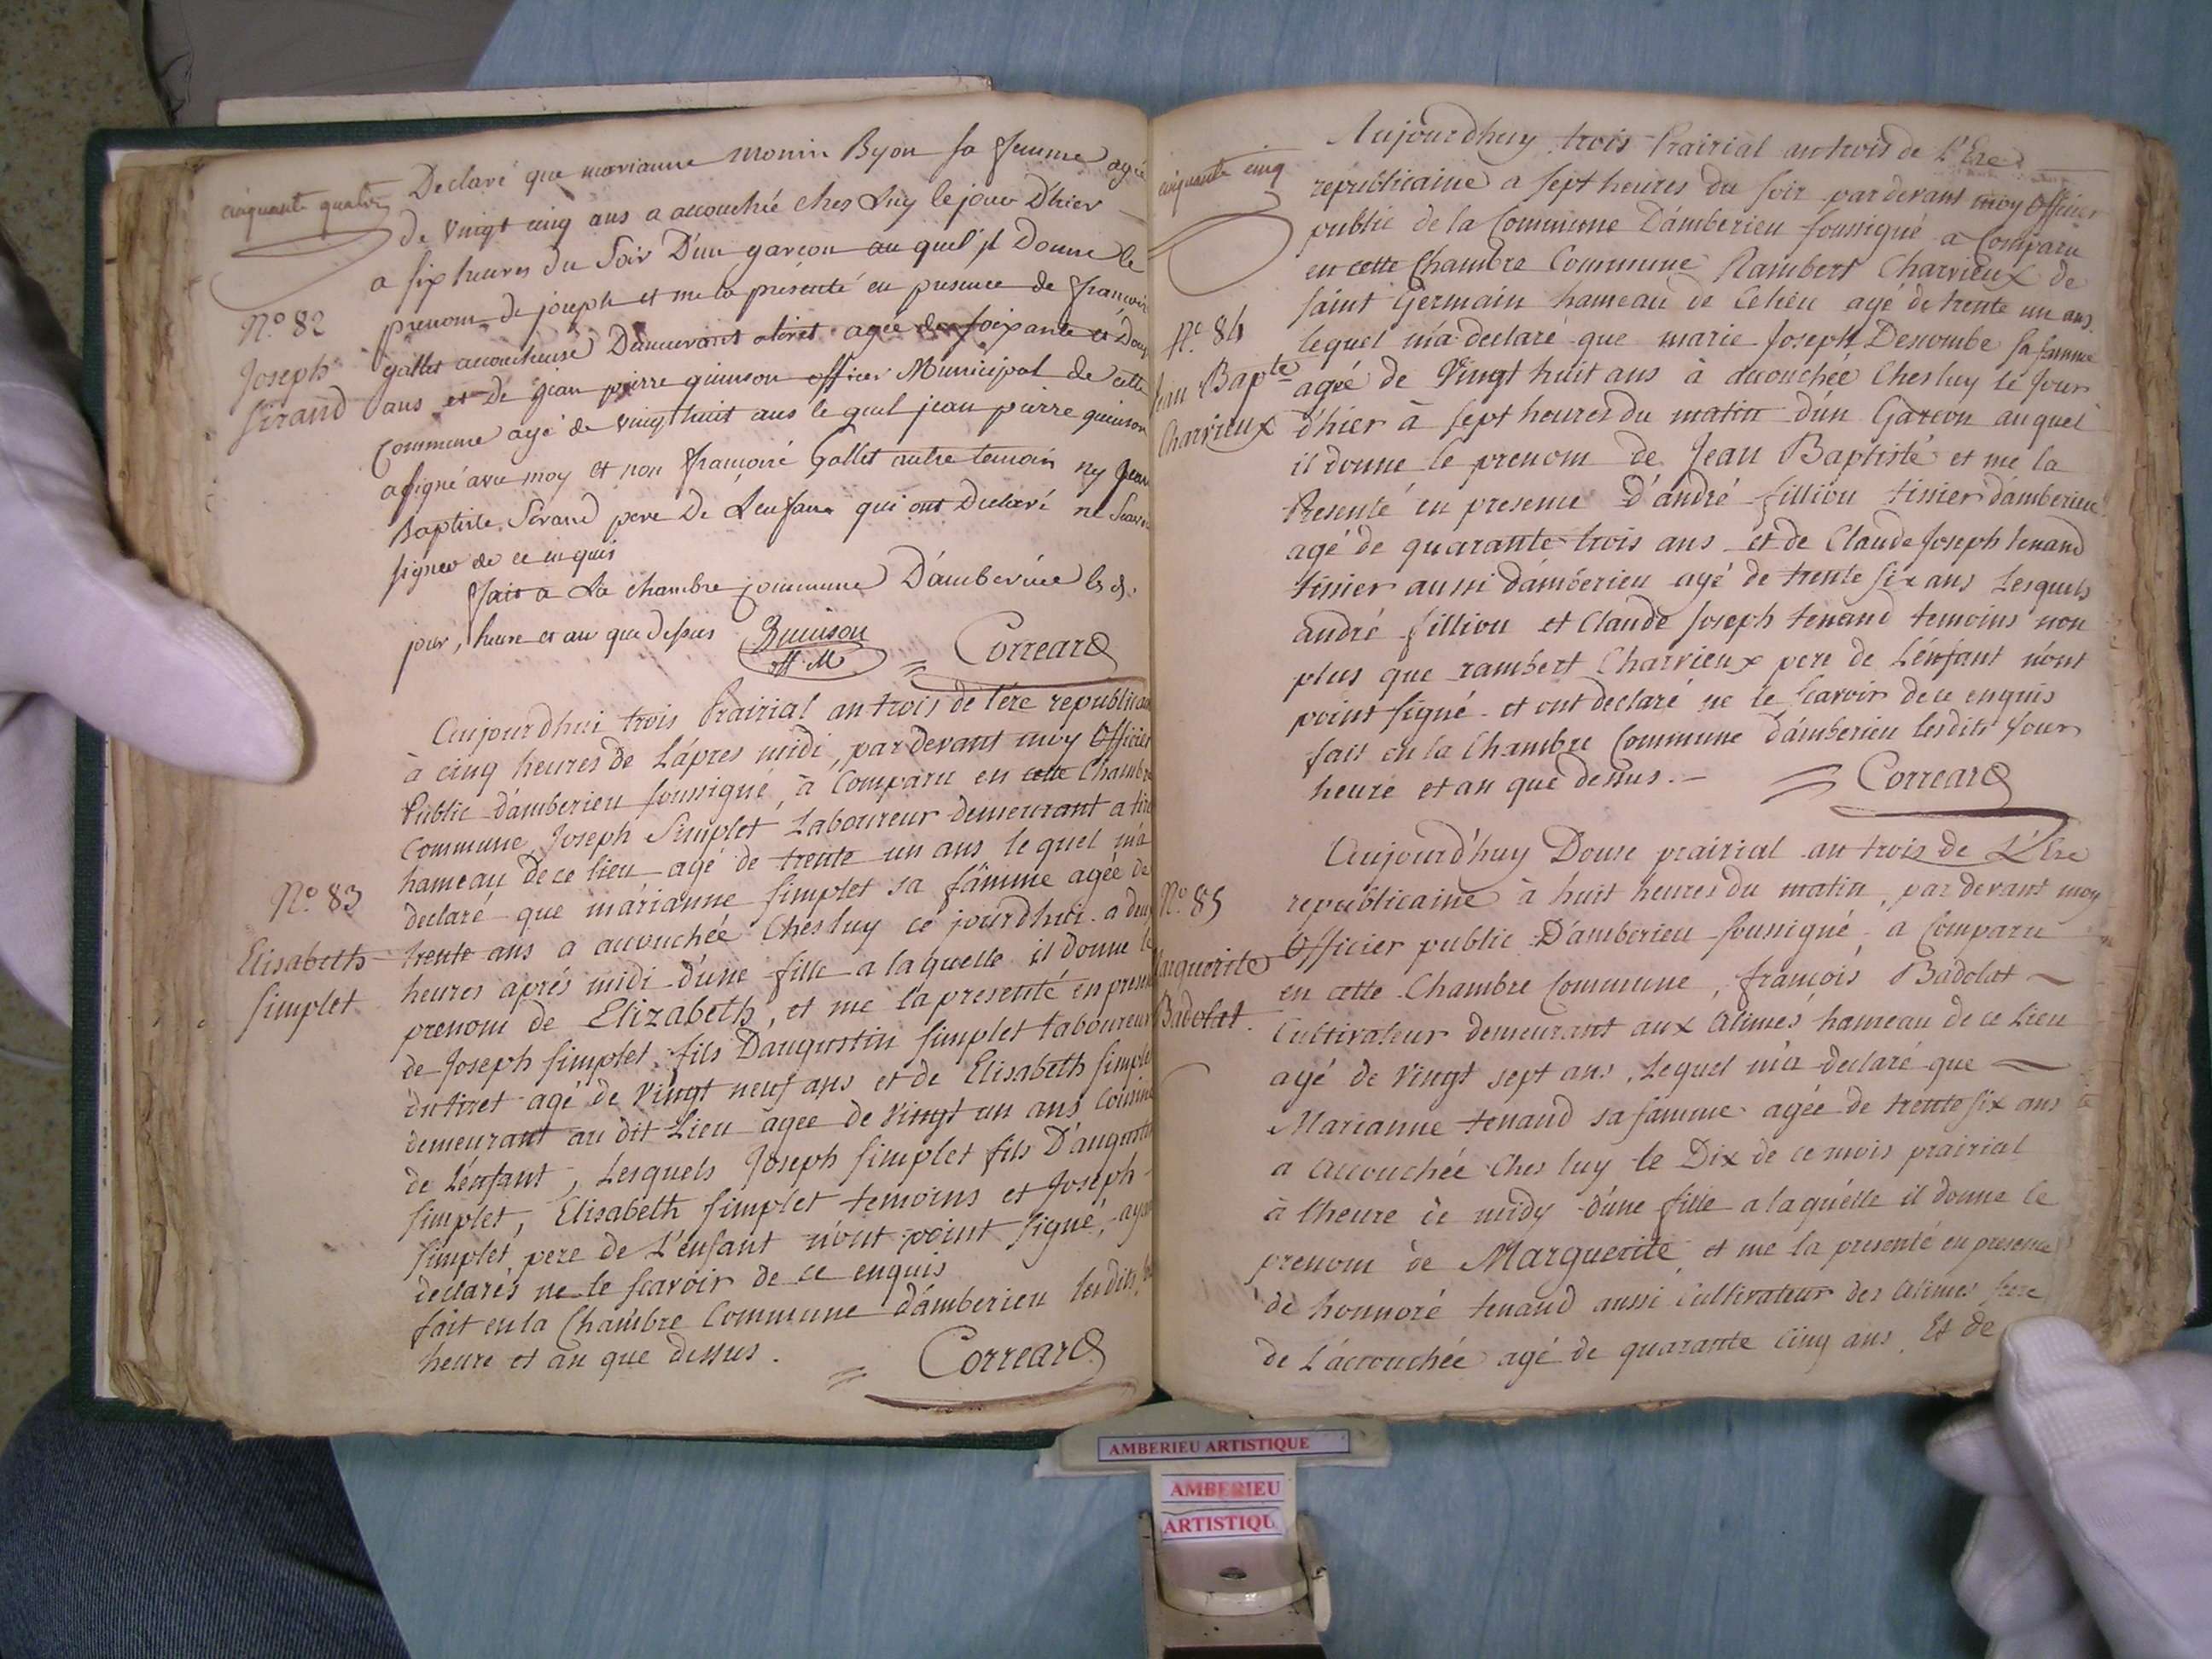 cinquante quatre
Declaré que marianne monin Byon sa femme agée
de vingt cinq ans a accouchée ches Luy le jour D'hier
a six heures du Soir D'un garcon au quel il Donne le
prenom de joseph et me la présenté en presence de francoise
N.o 82
Joseph
Sirand
gallet accoucheuse Demeurant atiret agée de soixante et Douze
ans et De jean pierre quinson officier Municipal de cette
Commune agé de vingt huit ans le quel jean pierre quinson
a signé avec moy et non francoise Gallet autre temoin ny Jean
Baptiste Sirand pere De L'enfant qui ont Declaré ne Scavoir
signer de ce enquis
fait a La chambre commune D'amberieu les d.
jour, heure et an que Dessus Quinson Correard
off. M
Aujourdhui trois Prairial an trois de l'ére republicaine
à cinq heures de L'âpres midi, par devant moy Officier
Public d'amberieu soussigné, à Comparu en cette Chambre
Commune Joseph Simplet Laboureur demeurant a tiret
hameau de ce lieu agé de trente un ans le quel m'a
N.o 83
Elisabeth
Simplet
declaré que marianne simplet sa fâmme agée de
trente ans a accouchée Ches luy ce jourdhui a deux
heures aprés midi d'une fille a laquelle il donne le
prenom de Elizabeth, et me la presenté en presence
de Joseph simplet fils D'augustin simplet laboureur
du tiret agé de Vingt neuf ans et de Elisabeth simplet
demeurant au dit Lieu agee de Vingt un ans Cousine
de L'énfant, Lesquels Joseph simplet fils D'augustin
simplet, Elisabeth simplet temoins et Joseph
simplet, pere de L'enfant n'ont point signé, ayant
declarés ne le scavoir de ce enquis
fait en la Chambre Commune d'amberieu lesdits
heure et an que dessus.
Correard
cinquante cinq
Aujourdhuy trois Prairial an trois de L'Ere
republicaine a sept heures du soir par devant moy Officier
public de la Commune D'amberieu soussigné a Comparu
en cette Chambre Commune Rambert Charvieux de
saint Germain hameau de ce lieu agé de trente un ans.
N.o 84
Jean Bapte
Charvieux
lequel m'a declaré que marie Joseph Descombe sa famme
agée de Vingt huit ans à accouchée Ches luy le jour
d'hier à sept heures du matin d'un Garcon auquel
il donne le prenom de Jean Baptisté et me la
Presenté en presence D'andré fillion tissier d'amberieu
agé de quarante trois ans et de Claude Joseph tenand
tissier aussi d'amberieu agé de trente six ans Lesquels
andré fillion et Claude Joseph tenand temoins non
plus que rambert Charvieux pere de L'énfant n'ont
point signé et ont declaré ne le scavoir de ce enquis
fait en la Chambre Commune d'amberieu lesdits jour
heure et an que dessus.
Correard
Aujourd'huy Douse prairial an trois de L'Ere
republicaine à huit heures du matin, par devant moy
N.o 85
Marguerite
Badolat.
Officier public D'amberieu soussigné, a Comparu
en cette Chambre Commune, françois Badolat
Cultivateur demeurant aux alimes hameau de ce Lieu
agé de Vingt sept ans, Lequel m'a declaré que
Marianne tenand sa famme agée de trente six ans
a accouchée Ches luy le Dix de ce mois prairial
à l'heure de midy d'une fille a laquelle il donne le
prenom de Marguerite, et me la presenté en presence
de honnoré tenand aussi Cultivateur des alimes frere
de L'accouchée agé de quarante cinq ans Et de
AMBERIEU ARTISTIQUE
AMBERIEU
ARTISTIQU